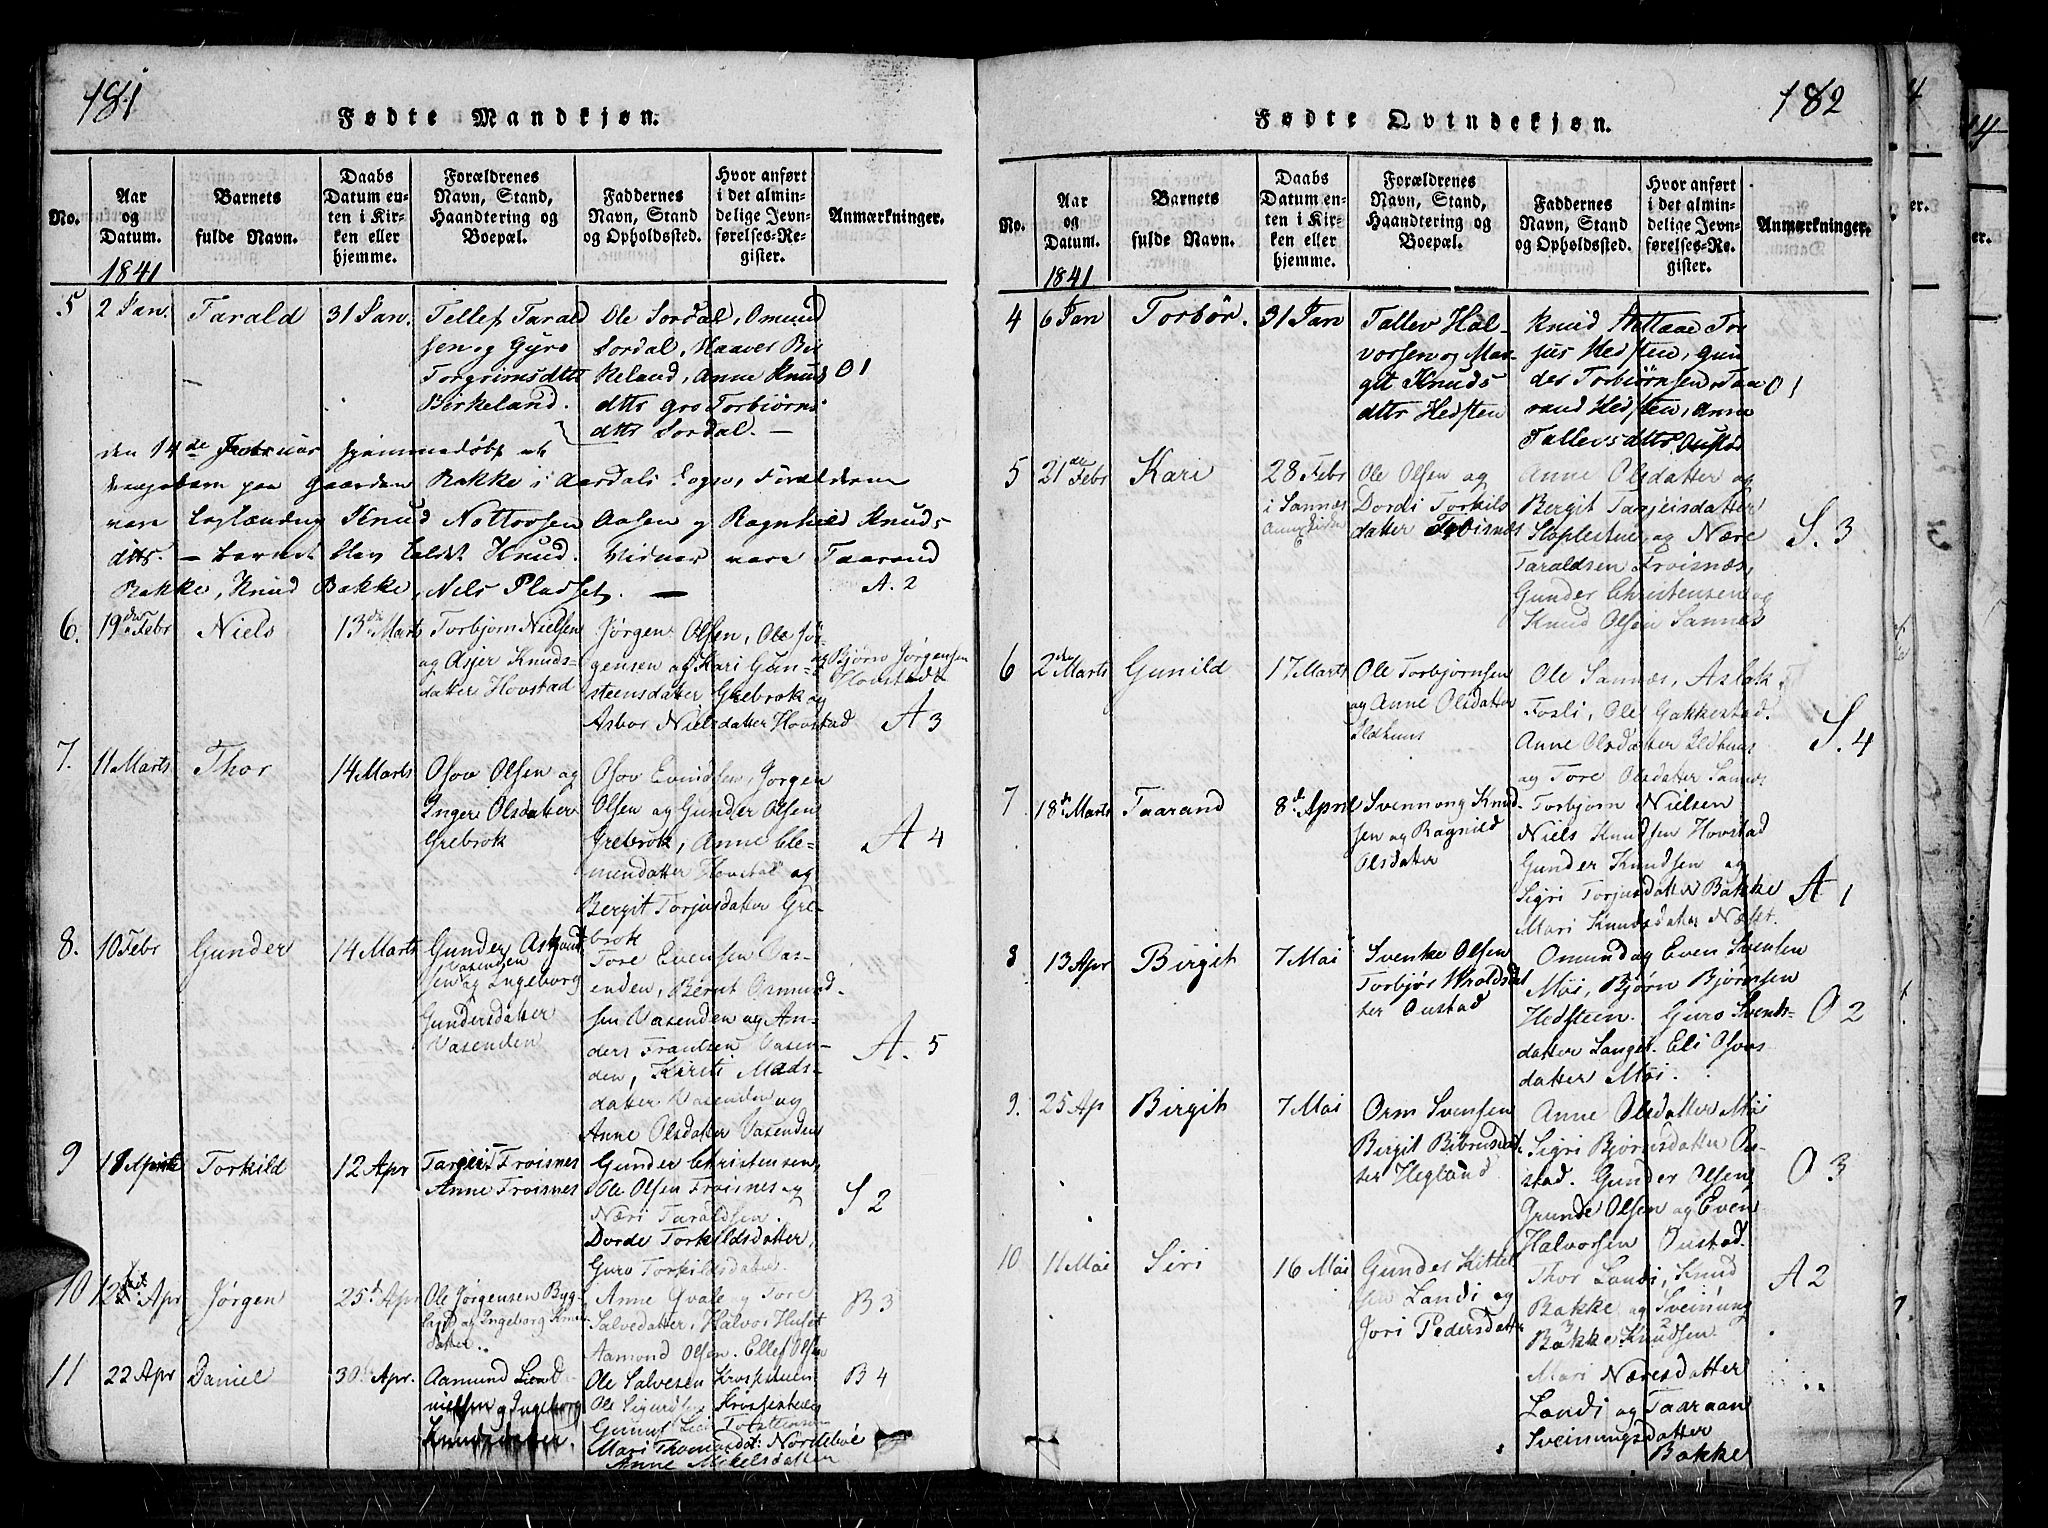 181
Fødte Mandkjøn.
No.
Aar
og
Datum.
1841
Barnets
fulde Navn.
Daabs
Datum en-
ten i Kir-
ken eller
hjemme.
Forældrenes
Navn, Stand,
Haandtering og
Boepæl.
Faddernes
Navn, Stand
og Opholdssted.
Hvor anført
i det almin-
delige Jevn-
førelses-Re-
gister.
Anmærkninger.
5 2 Jan. Tarald 31 Jan.
Tellef Tarald
sen og Gyro
Torgrimsdtter
Birkeland.
Ole Sordal, Omund
Sordal, Haaver Bir
keland, Anne Knuds
dttr Gro Torbiörns
dttr Sordal. —
O 1
den 14de Februar hjemmedøbt et
paa Gaarden Bakke i Aardals Sogn, Forældrene
vare Knud Nottovsen Aasen og Ragnhild Knuds-
dttr. — Barnet blev kaldt Knud. Vidner vare Taarand
Bakke, Knud Bakke, Nels Pladset. —
A. 2
6. 19de Febr Niels 13de Marts
Torbjorn Nielsen
og Asjer Knuds-
datter Hovstad
Jørgen Olsen, Ole Jör
gensen og Kari Gun-
steensdatter Grebrok og
Asbor Nielsdatter Hovstad
og Bjørn Jørgensen
Hovstad
A 3
7. 11 Marts Thor 14 Marts
Osov Olsen og
Inger Olsdatter
Grebrok
Osov Evindsen, Jorgen
Olsen og Gunder Olsen
Grebrok, Anne Cle-
mendatter Hovstad og
Bergit Torjusdatter Gre-
brok
A 4
8. 10 Febr Gunder 14 Marts
Gunder Askjend
Vasenden
sen og Ingeborg
Gundersdatter
Vasenden
Tore Evensen Vas-
enden, Bernt Osmund-
sen Vasenden og An-
ders Frantsen Vasen-
den, Kirsti Mads-
datter Vasenden og
Anne Olsdatter Vasenden
A. 5
9 1ste April Torkild 12 Apr
Targeis Froisnes
Anne Froisnes
Gunder Christensen,
Ole Olsen Froisnes og
Næri Taraldsen.
Dorde Torkildsdatter,
Guro Torkildsdatter
S 2
10 12 Apr Jørgen 25de Apr
Ole Jørgensen Byg-
land og Ingeborg Knuds
datter.
Anne Qvale og Tore
Salvedatter, Halvo Huset
Aamond Olsen. Ellef Olsen
B 3
11 22 Apr Daniel 30 Apr.
Aamund Dani
nielsen og Ingeborg
Knudsdatter.
Ole Salvesen
Ole Sigurdsen
Gunuf Lien Torstensen
Mari Thomasdat: Nordeboe
Anne Mikelsdatten
B 4
182
Fødte Qvindekjøn.
No.
Aar
og
Datum.
1841
Barnets
fulde Navn.
Daabs
Datum en-
ten i Kir-
ken eller
hjemme.
Forældrenes
Navn, Stand,
Haandtering og
Boepæl.
Faddernes
Navn, Stand
og Opholdssted.
Hvor anført
i det almin-
delige Jevn-
førelses-Re-
gister.
Anmærkninger.
4 6 Jan Torbör. 31 Jan
Tallev Hal-
vorsen og Mar-
git Knuds
dttr Hedsten
Knud Tor
jus Hedsten, Gun
der Torbiörnsen, Taa
rand Hedsten, Anne
Tallevsdttr Oustad
O 1
5 21de Febr Kari 28 Febr
i Sannes
Annexkirke
Ole Olsen og
Dordi Torkils
datter Froisnes
Anne Olsdatter og
Bergit Tarjeisdatter
Staplestuen og Nære
Taraldsen Froisnæs,
Gunder Christensen og
Knud Olsen Sannes
S. 3
6 2den Marts Gunild 17 Marts
Ole Torbjørnsen
og Anne Olsdatter
Ildhuus
Ole Sannæs, Aslak
Fosli, Ole Gakkestad.
Anne Olsdatter Ildhuus
og Tore Olsdatter Sannes
S. 4
7 18de Marts Taarand 8de April
Svennong Knud-
sen og Ragnild
Olsdatter
Torbjorn Nielsen
Niels Knudsen Hovstad
Gunder Knudsen og
Sigri Torjusdatter Bakke
Mari Knudsdatter Næset.
A 1
8 13 Apr Birgit 7 Mai
Svenke Olsen
Torbjör
ter Oustad
Omund og Even Svensen
Moi, Bjørn Bjørnsen
Hedsteen. Guro Svends-
datter Langei. Eli Osovs
datter Moi.
O 2
9. 25 Ap Birgit 7 Mai
Orm Svensen
Birgit
ter Hegland
Anne Olsdatter Moi
Sigri Bjørnsdatter Ou-
stad. Gunder Olsen,
Grunde Olsen og Even
Halvorsen Oustad.
O 3
10 11 Mai Siri 16 Mai
Gunder Kittel
sen Landi og
Jori Pedersdatter
Thor Landi, Knud
Bakke og Sveinung
Bakke Knudsen.
Mari Næresdatter
Landi og Taaraan
Sveinungsdatter
Bakke
A 2